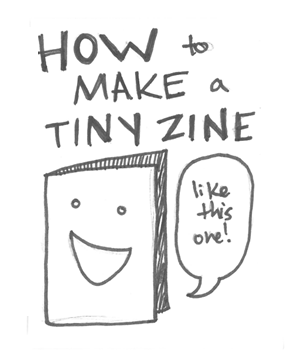 HOW to
MAKE a
TINY ZINE
like
this
one!